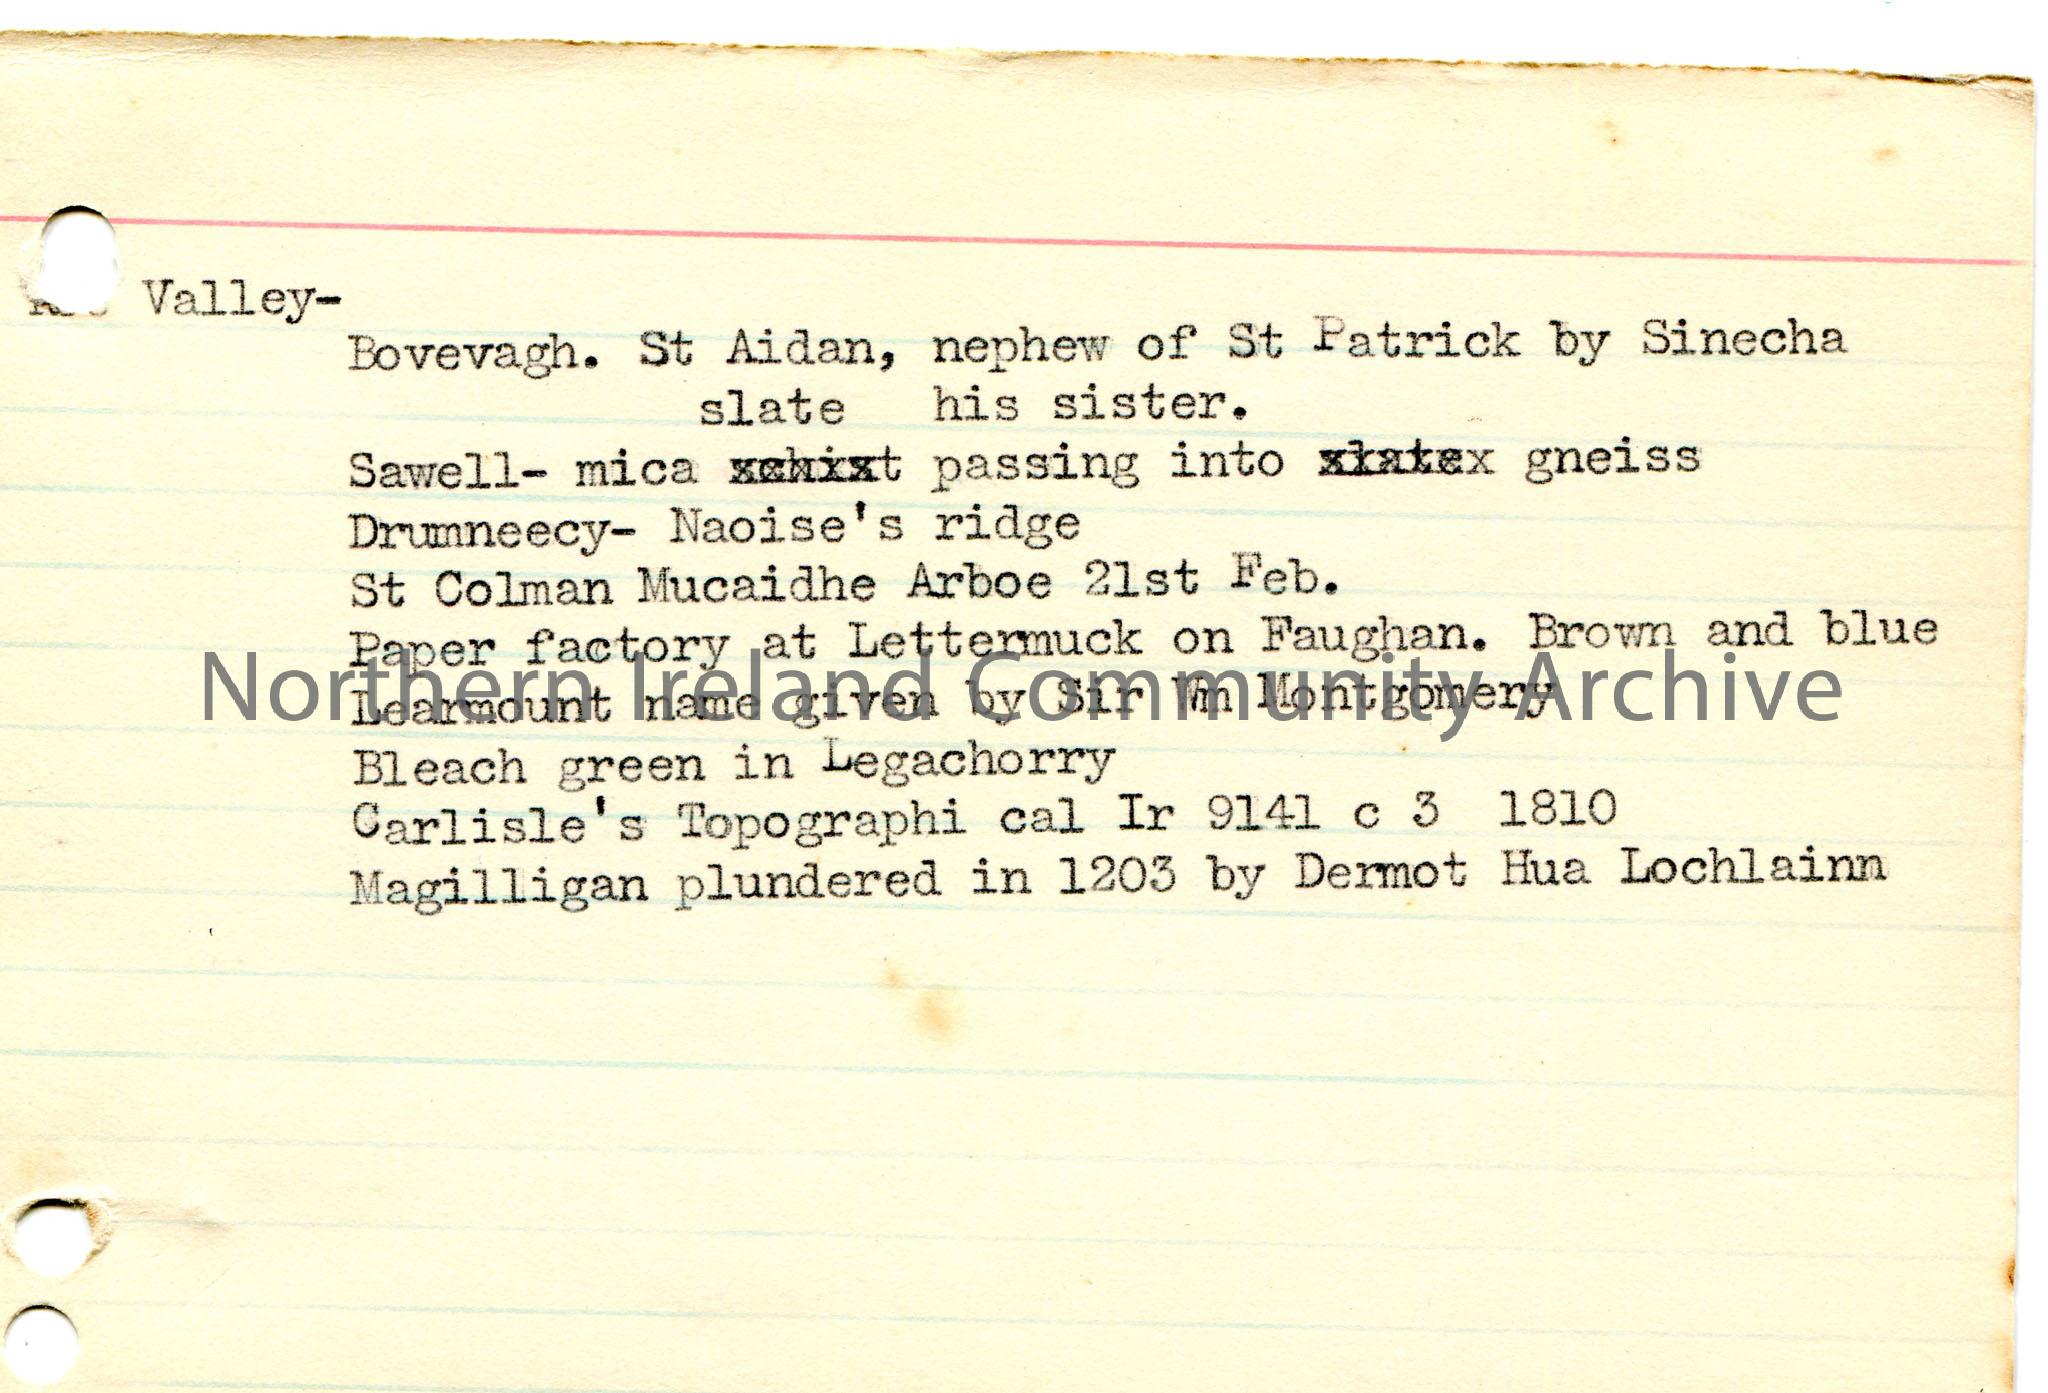 Valley-
Bovevagh. St Aidan, nephew of St Patrick by Sinecha
slate his sister.
Sawell- mica passing into gneiss
Drumneecy- Naoise's ridge
St Colman Mucaidhe Arboe 21st Feb.
Paper factory at Lettermuck on Faughan. Brown and blue
Northern Ireland Community Archive
Learmount name given by Sir Wm Montgomery
Bleach green in Legachorry
Carlisle's Topographi cal Ir 9141 c 3 1810
Magilligan plundered in 1203 by Dermot Hua Lochlainn